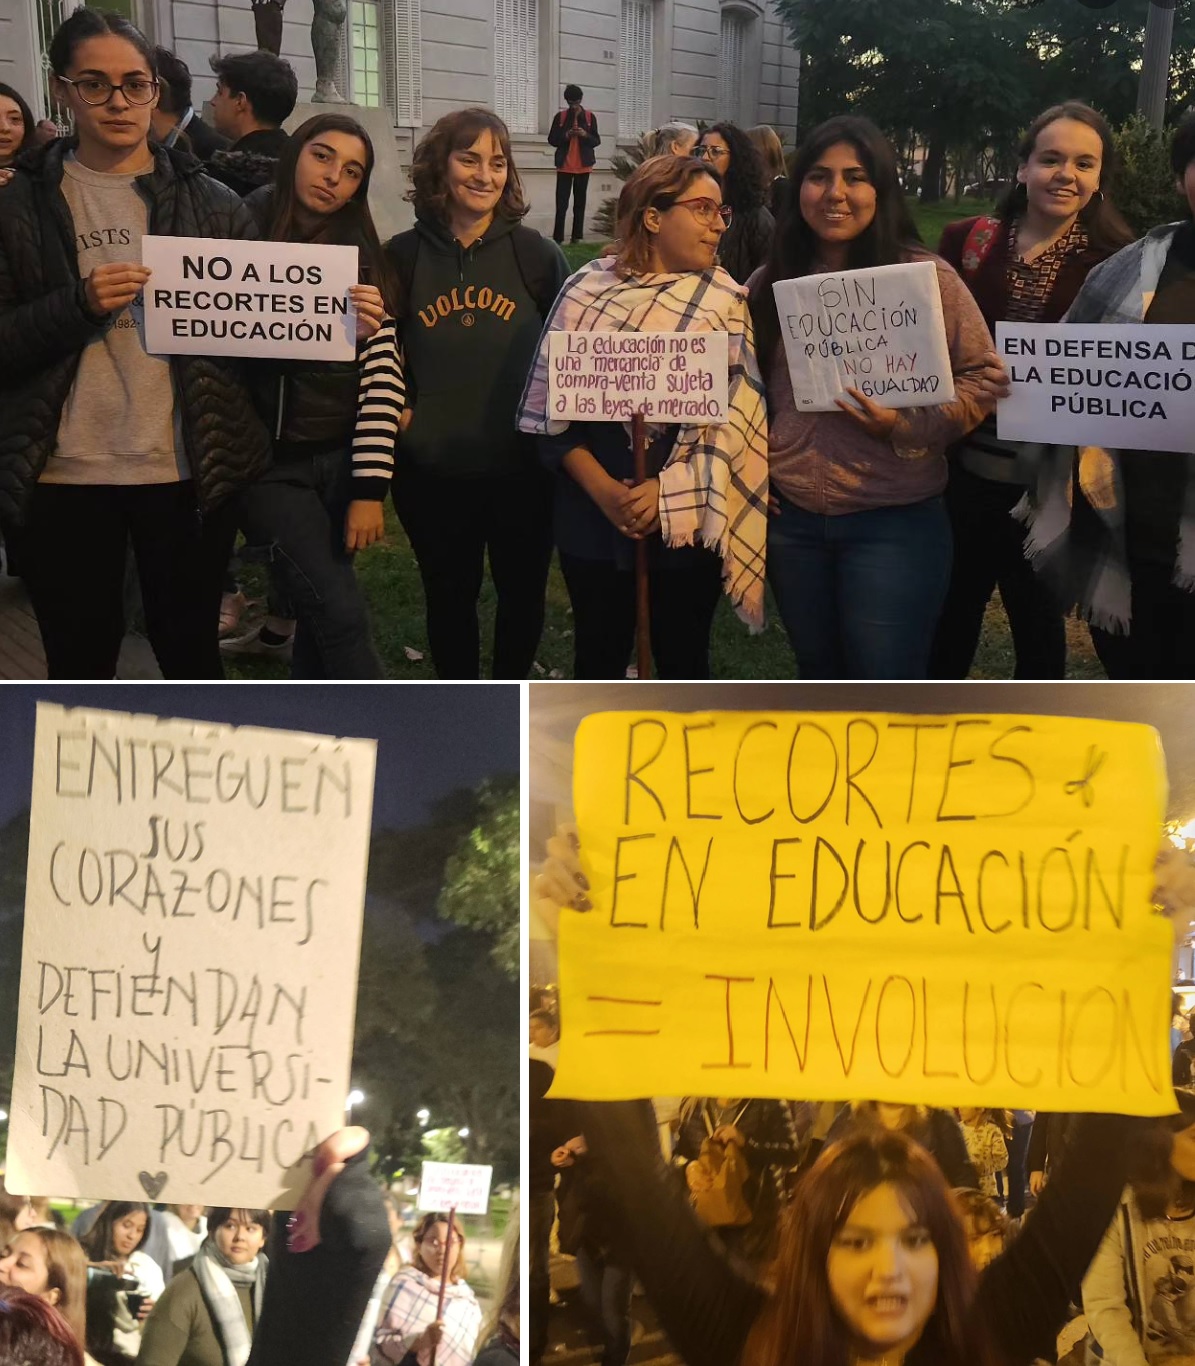 ISTS
1982
NO A LOS
RECORTES EN
EDUCACIÓN
VOLCOM
La educación no es
una "mercancía" de
compra-venta sujeta
a las leyes de mercado.
SIN
EDUCACIÓN
PÚBLICA
NO HAY
IGUALDAD
EN DEFENSA D
LA EDUCACIÓ
PÚBLICA
ENTREGUEN
SUS
CORAZONES
Y
DEFIENDAN
LA UNIVERSI-
DAD PÚBLICA
RECORTES
EN EDUCACIÓN
= INVOLUCION